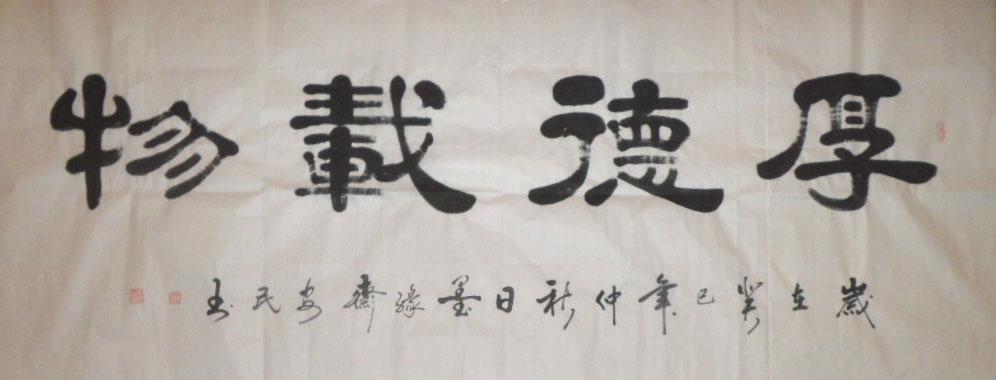 厚德載物
歲在癸巳年仲秋日墨緣齋安民书